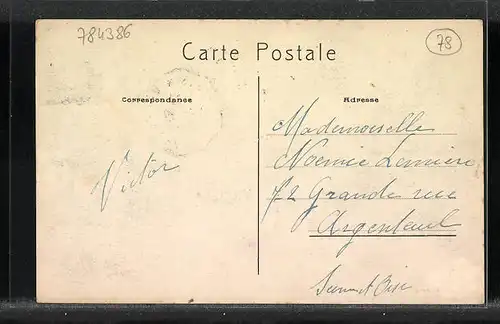 784386
78
Carte Postale
Correspondance
Adresse
Victor
Mademoiselle
Noemie Lemière
72 Grande rue
Argenteuil
Seine et Oise